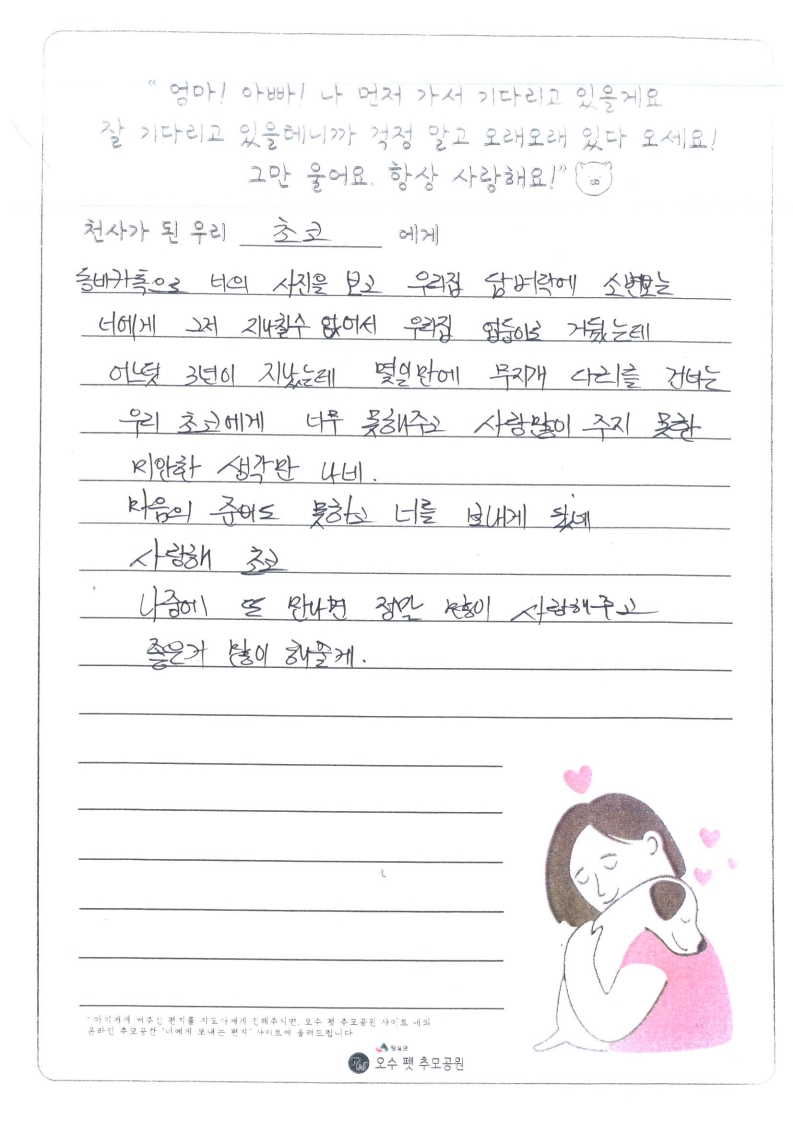 “ 엄마! 아빠! 나 먼저 가서 기다리고 있을게요
잘 기다리고 있을테니까 걱정 말고 오래오래 있다 오세요!
그만 울어요. 항상 사랑해요!”
천사가 된 우리 초코 에게
너의 사진을 보고 우리집 담벼락에 소변보는
너에게 그저 지나칠수 없어서 우리집 업둥이로 거뒀는데
어느덧 3년이 지났는데 몇일만에 무지개 다리를 건너는
우리 초코에게 너무 못해주고 사랑많이 주지 못한
미안한 생각만 나네.
마음의 준비도 못하고 너를 보내게 됐네
사랑해 초코
나중에 또 만나면 정말 많이 사랑해주고
좋은거 많이 해줄게.
* 아이에게 써주신 편지를 지도사에게 전해주시면, 오수 펫 추모공원 사이트 내의
온라인 추모공간 '너에게 보내는 편지' 사이트에 올려드립니다
임실군
오수 펫 추모공원